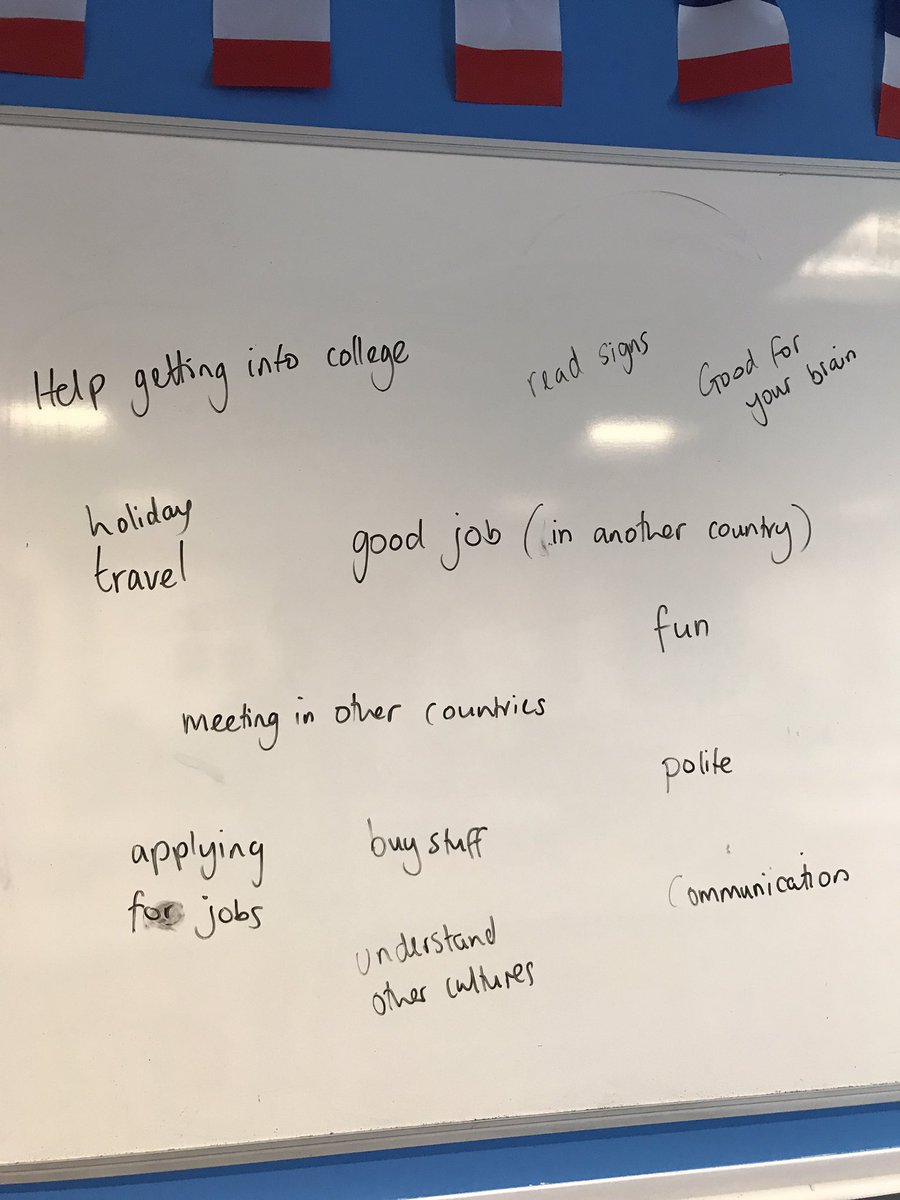 Help getting into college
read signs
Good for
your brain
holiday
travel
good job (in another country)
fun
meeting in other countries
polite
applying
for jobs
buy stuff
communication
understand
other cultures